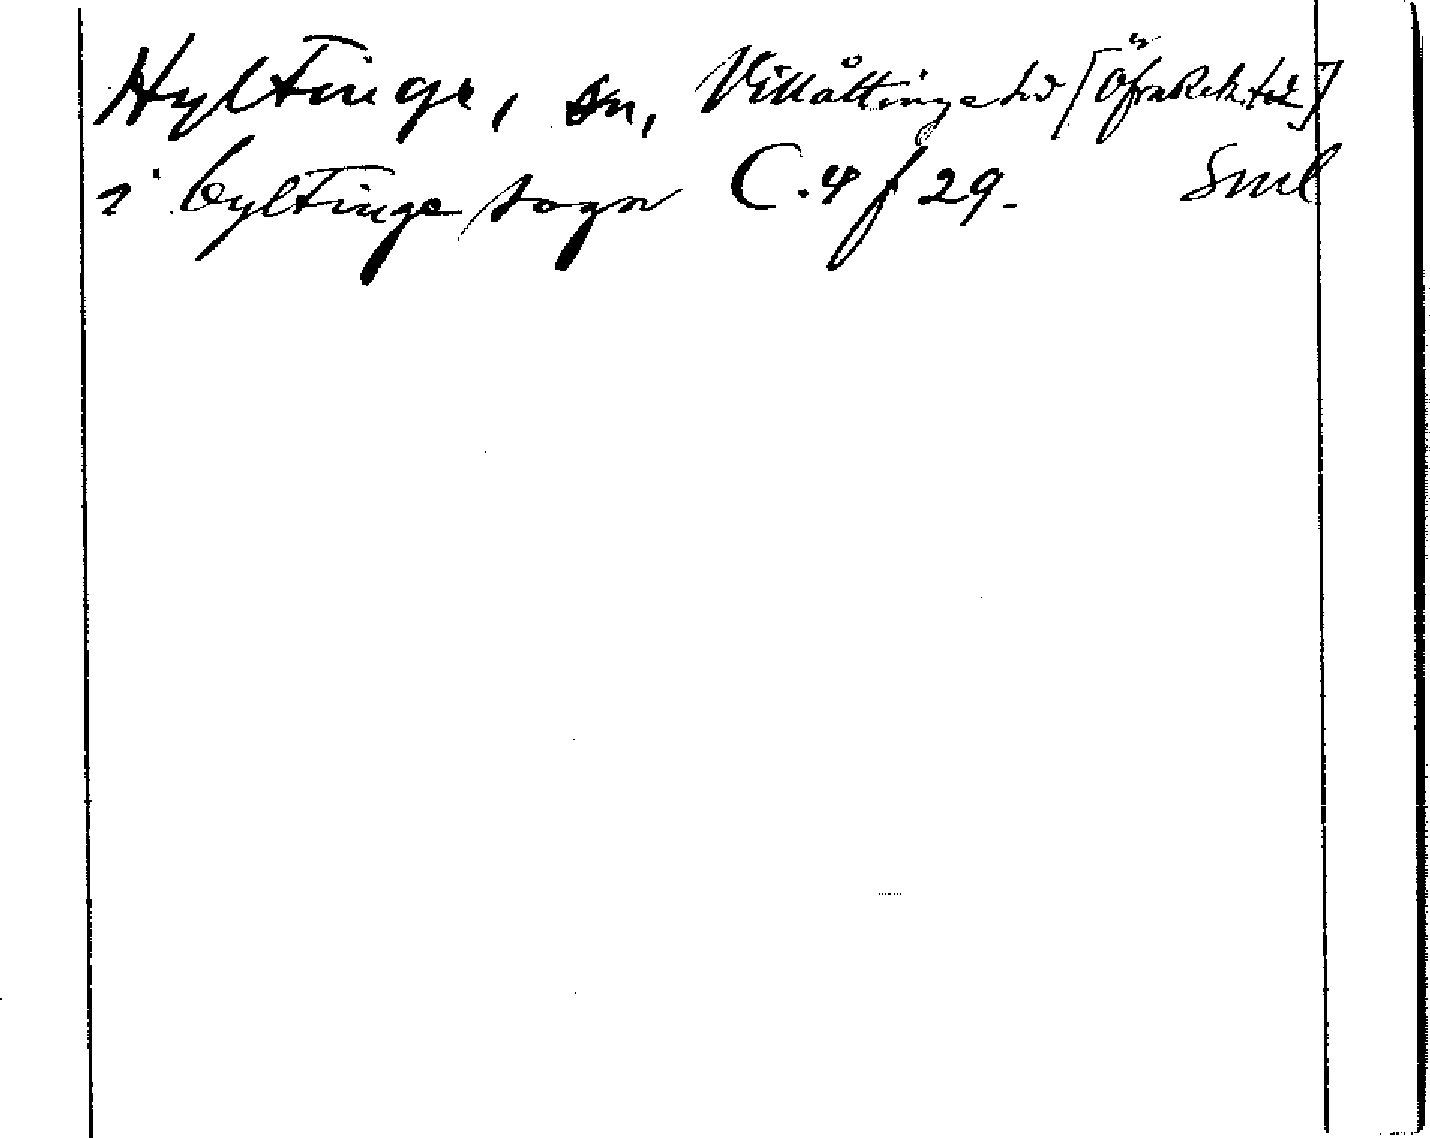 Hyltinge, sn, Villåttinge hd [Öfrarekhde]
i byltinge sogn C.4 f 29. Sml